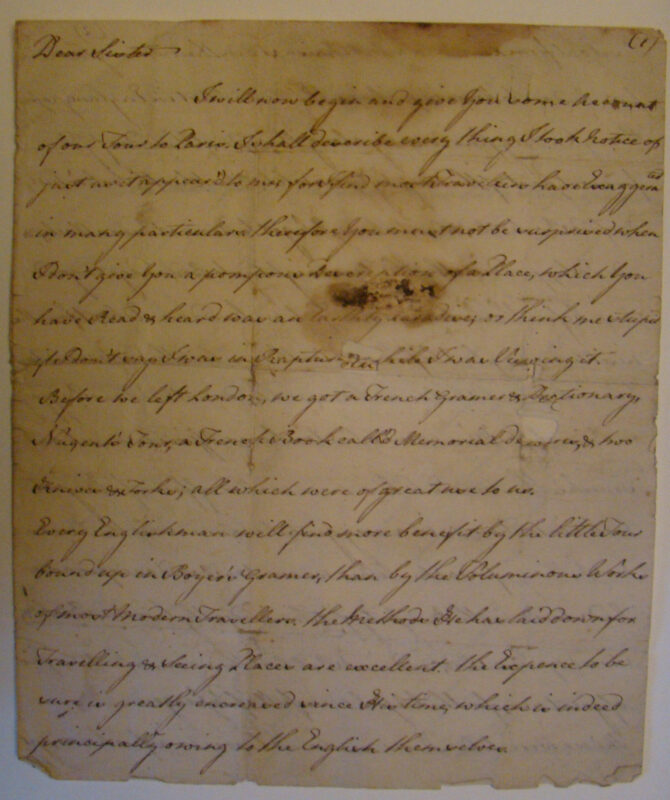 (1)
Dear Sister
I will now begin and give You some Account
of our Tour to Paris. I shall describe every thing I took Notice of
just as it appear'd to me, for I find most Travelers have Exaggerated
in many particulars. therefore You must not be surprised when
I Don't give You a pompous Description of a Place, which You
have Read & heard was an Earthly paradise; or think me stupid
if I Don't say I was in Raptures while I was Viewing it.
Before we left London, we got a French Gramer & Dictionary,
Nugent's Tour, a French Book call'd Memorial de Paris, & two
Knives & Forks; all which were of great use to us.
Every Englishman will find more benefit by the little Tour
bound up in Boyer's Gramer, than by the Voluminous Works
of most Modern Travellers. the Methods He has laid down for
Travelling & Seeing Places are excellent. the Expence to be
sure is greatly encreased since His time, which is indeed
principally owing to the English themselves.